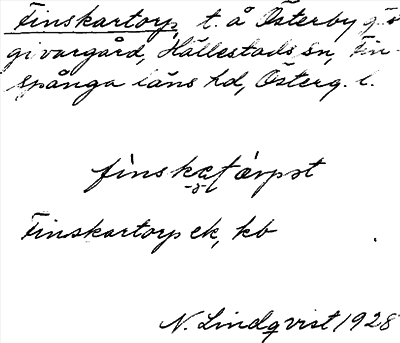 Finskartorp, t. å Österby gäst-
givargård, Hällestads sn, Fin-
spånga läns hd, Österg. l.
Finskartorp ek, kb
N. Lindqvist 1928